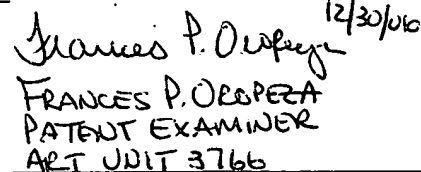 12/30/06
Frances P. Oropeza
FRANCES P. OROPEZA
PATENT EXAMINER
ART UNIT 3766